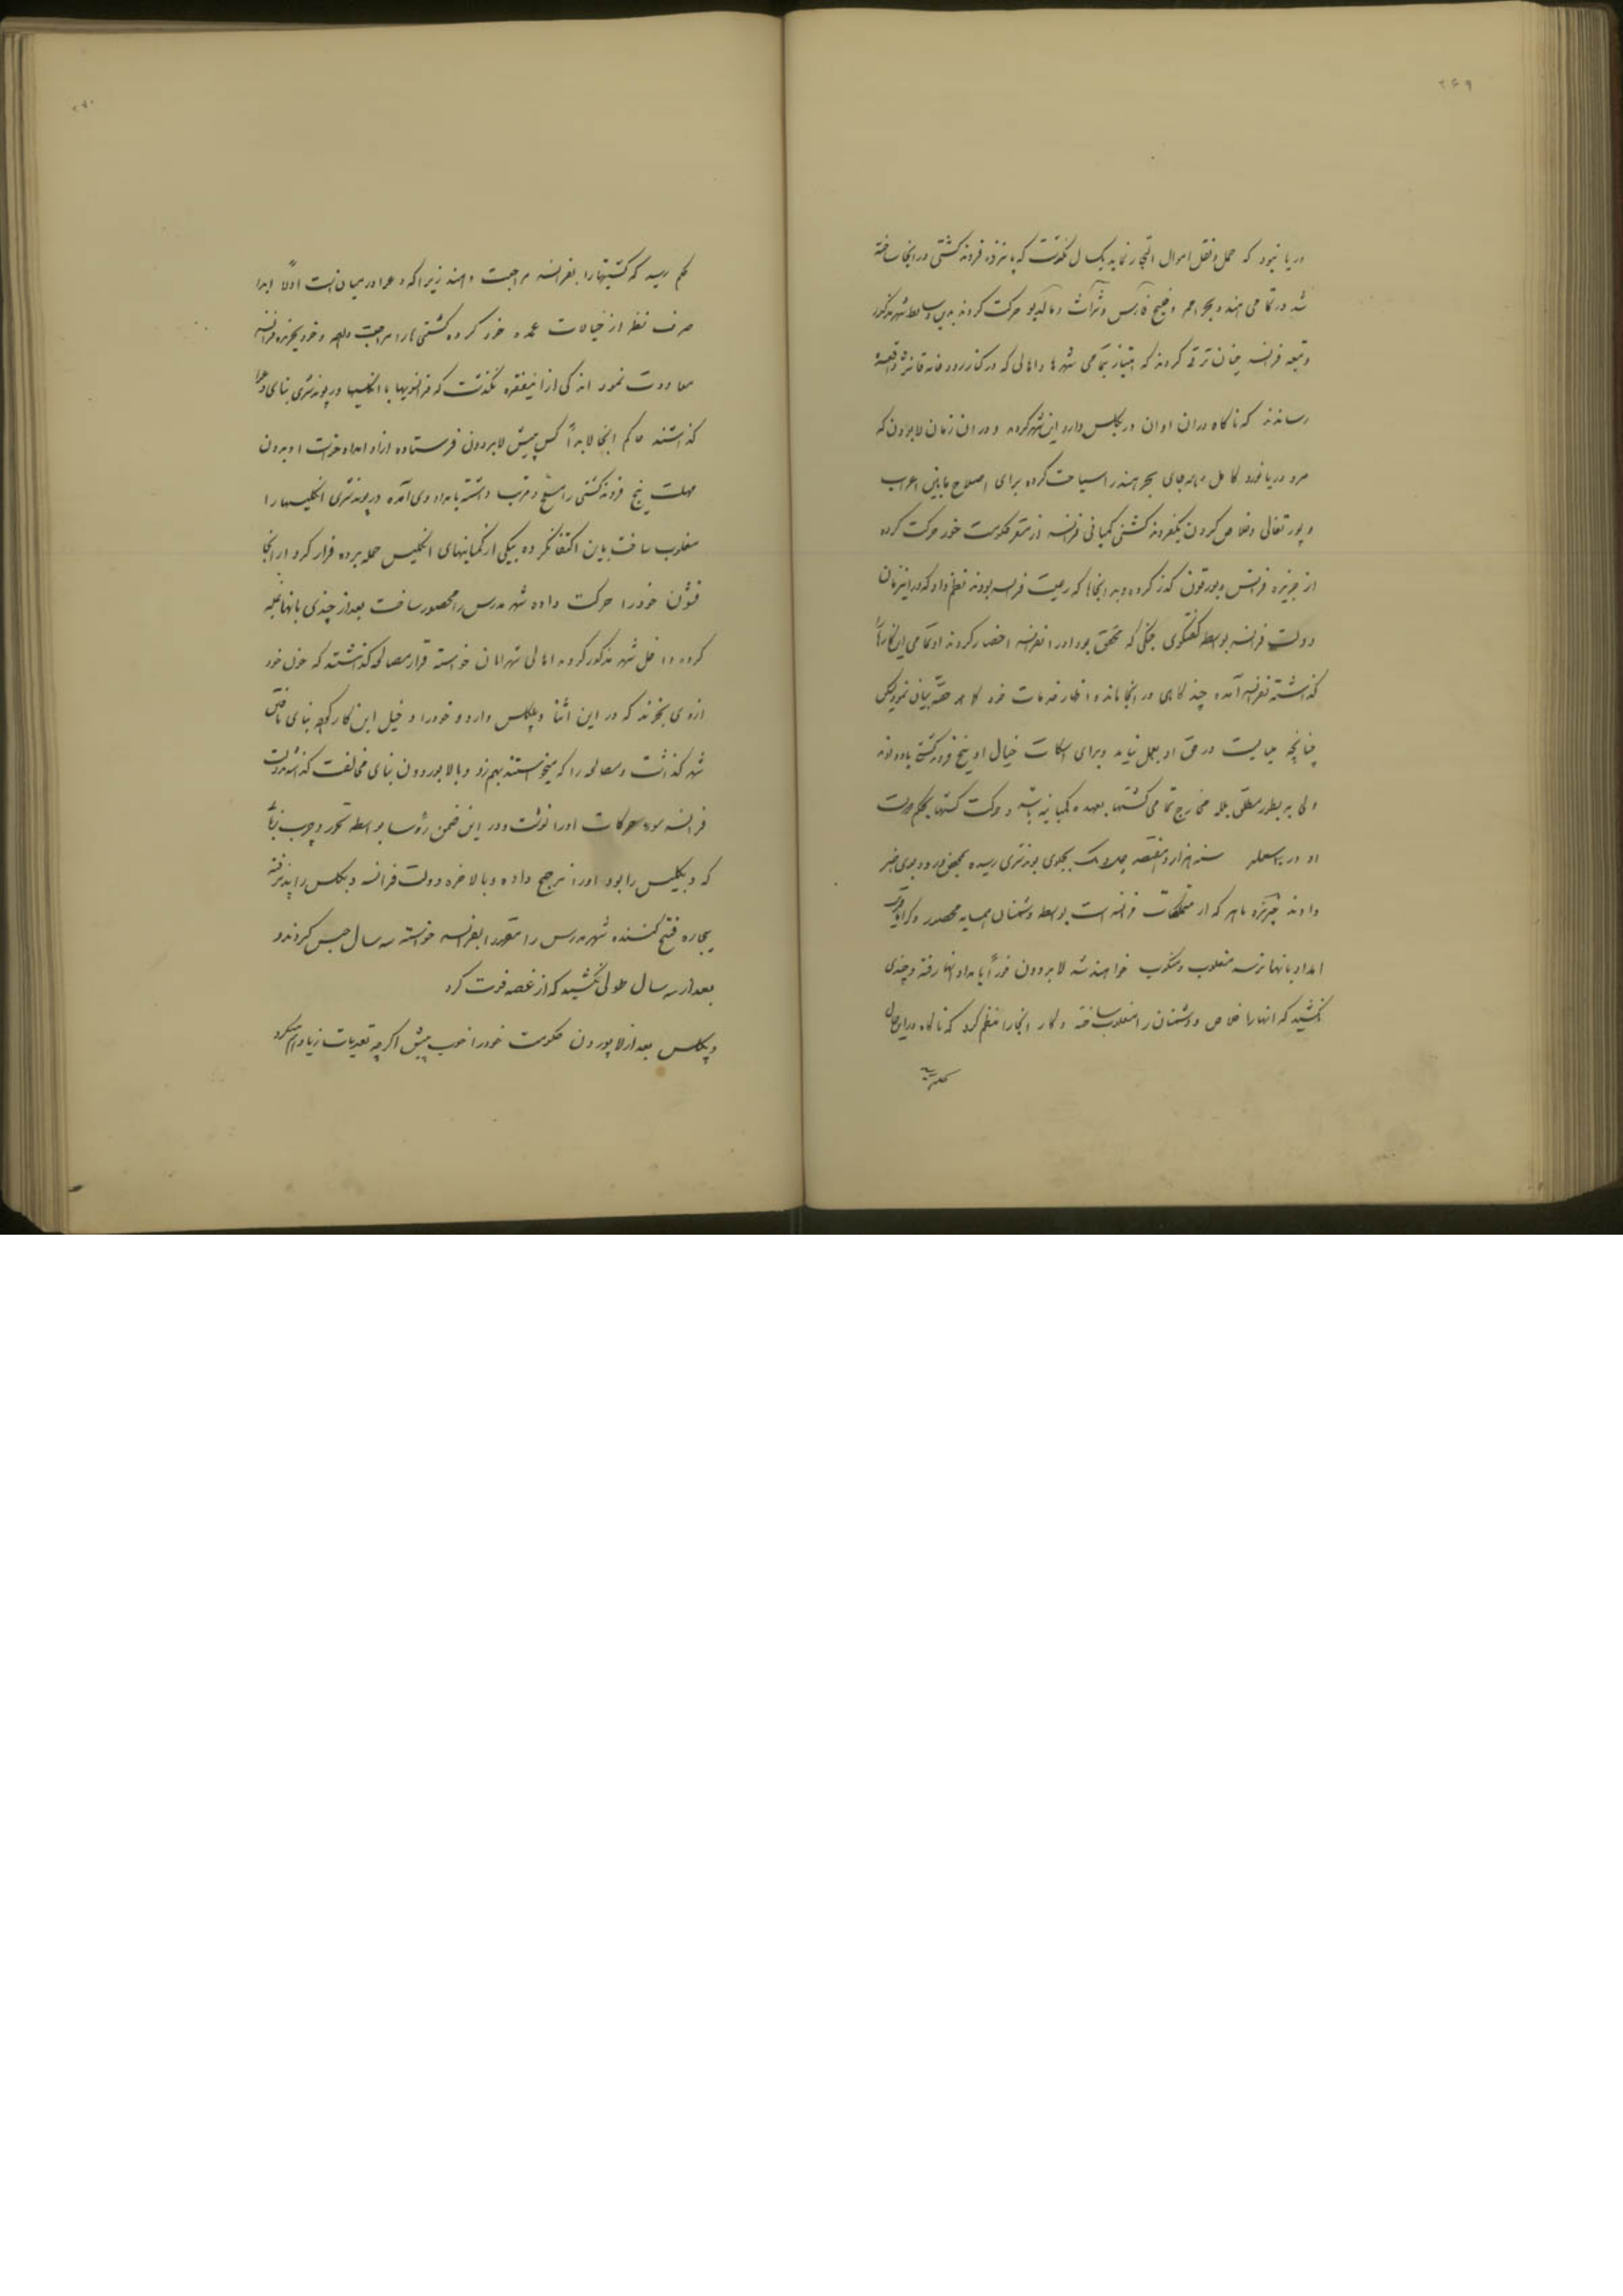 ۲۶۹
دریا نبود که حمل و نقل اموال التجار نماید یک سال نگذشت که پانزده فروند کشتی در انجا ساخته
شد در تمامی هند و بحر احمر و خلیج فارس و حرکت کردند بدین واسطه شهر مذکور
و تبعه فرانسه چنان ترقی کردند که امتیاز بتمامی شهرها و اهالی که در کنار رودخانه
رساندند که ناگاه دران اوان دپکلس وارد این شهر کردید و در ان زمان لابردون که
مرد دریانورد کامل همه جای بحر هند را سیاحت کرده برای اصلاح مابین اعراب
و پورتغالی و خلاص کردن یکفروند کشتی کمپانی فرانسه از مقر حکومت خود حرکت کرده
از جزیره فرانس و بوربون گذر کرده و به انجاها که رعیت فرانسه بودند نظم داد که در اینزمان
دولت فرانسه بواسطه گفتگوی جنگی که محقق بود او را بفرانسه احضار کردند او تمامی این کارها را
گذاشته بفرانسه آمده چند گاهی در انجا مانده اظهار خدمات خود کما هو حقه بیان نمود لیکن
چنانچه میبایست در حق او بعمل نیاید و برای اسکات خیال او پنج فروند کشتی باو دادند
ولی نه بطور مطلق بلکه مخارج تمامی کشتیها بعهده کمپانی باشد و حرکت کشتیها بحکم دولت
او در سنه هزار و هفتصد و چهل و یک بجلوی پوندشری رسیده بمحض ورود بوی خبر
دادند جزیره ماهی که از متملکات فرانسه است بواسطه دشمنان همسایه محصور
امداد بانها نرسد مغلوب و منکوب خواهند شد لابردون فوراً بامداد انها رفته و چندی
نکشید که انها را خلاص و دشمنان را مغلوب ساخته و کار انجا را منظم کرد که ناگاه در این حال
۲۷۰
حکم رسید که کشتیها را بفرانسه مراجعت دهند زیرا که دعوا در میان نیست اولاً ابدا
صرف نظر از خیالات عمده خود کرده کشتی ها را مراجعت داده و خود بجزیره فرانسه
معاودت نمود اندکی از اینفقره نگذشت که فرانسویها با انگلیسها در پوندشری بنای دعوا
گذاشتند حاکم انجا لابداً کس پیش لابردون فرستاده از او امداد خواست او بدون
مهلت پنج فروند کشتی را مسلح و مرتب داشته بامداد وی آمده در پوندشری انگلیسها را
مغلوب ساخت باین اکتفا نکرده بیکی از کمپانیهای انگلیس حمله برده فرار کرد از انجا
قشون خود را حرکت داده شهر مدرس را محصور ساخت بعد از چندی بانها غلبه
کرده داخل شهر مذکور کردید اهالی شهر امان خواسته قرار مصالحه گذاشتند که خون خود
از وی بخرند که در این اثنا دپکلس وارد و خود را دخیل این کار کرده بنای
شهر گذاشت و مصالحه را که میخواستند بهم زد و با لابوردون بنای مخالفت گذاشت بدولت
فرانسه سوء حرکات او را نوشت و در این ضمن رؤسا بواسطه
که دپکلیس را بود او را ترجیح داده و بالاخره دولت فرانسه دپکلس را پذیرفته
بیچاره فتح کننده شهر مدرس را مقهوراً بفرانسه خواسته سه سال حبس کردند و
بعد از سه سال طولی نکشید که از غصه فوت کرد
دپکلس بعد از لابوردون حکومت خود را خوب پیش اگرچه تعدیات زیاد هم میکرد